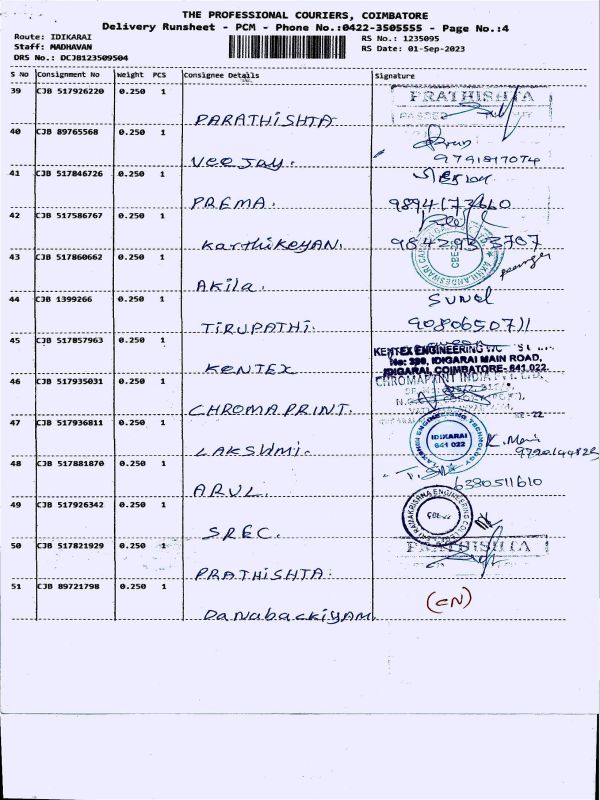 THE PROFESSIONAL COURIERS, COIMBATORE
Delivery Runsheet - PCM - Phone No.:0422-3505555 - Page No.:4
Route: IDIKARAI
RS No.: 1235095
Staff: MADHAVAN
RS Date: 01-Sep-2023
DRS No.: DCJB123509504
S No Consignment No Weight PCS Consignee Details Signature
39 CJB 517926220 0.250 1
PARATHISHTA
PRATHISHTA
40 CJB 89765568 0.250 1
VeeJay.
9791817074
41 CJB 517846726 0.250 1
PREMA.
9894173660
42 CJB 517586767 0.250 1
KarthiKeyAN.
9842933707
43 CJB 517860662 0.250 1
AKila.
44 CJB 1399266 0.250 1
TIRUPATHI.
9080650711
45 CJB 517857963 0.250 1
KENTEX
KENTEX ENGINEERING
No: 399, IDIGARAI MAIN ROAD,
IDIGARAI, COIMBATORE- 641 022.
46 CJB 517935031 0.250 1
CHROMAPRINT.
CHROMAPRINT INDIA PVT. LTD.
47 CJB 517936811 0.250 1
LAKSHMI.
LAXMEN ENGINEERING TECHNOLOGY
IDIKARAI
641 022
K. Mani
48 CJB 517881870 0.250 1
ARUL.
6380511610
49 CJB 517926342 0.250 1
SREC.
SRI RAMAKRISHNA ENGINEERING COLLEGE
CBE-22
50 CJB 517821929 0.250 1
PRATHISHTA.
PRATHISHTA
51 CJB 89721798 0.250 1
Danabackiyam.
(CN)